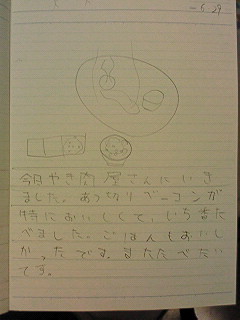 6 29
今日やき肉屋さんにいき
ました。あつぎりベーコンが
特においしくて、いち番た
べました。ごはんもおいし
かったです。またたべたい
です。